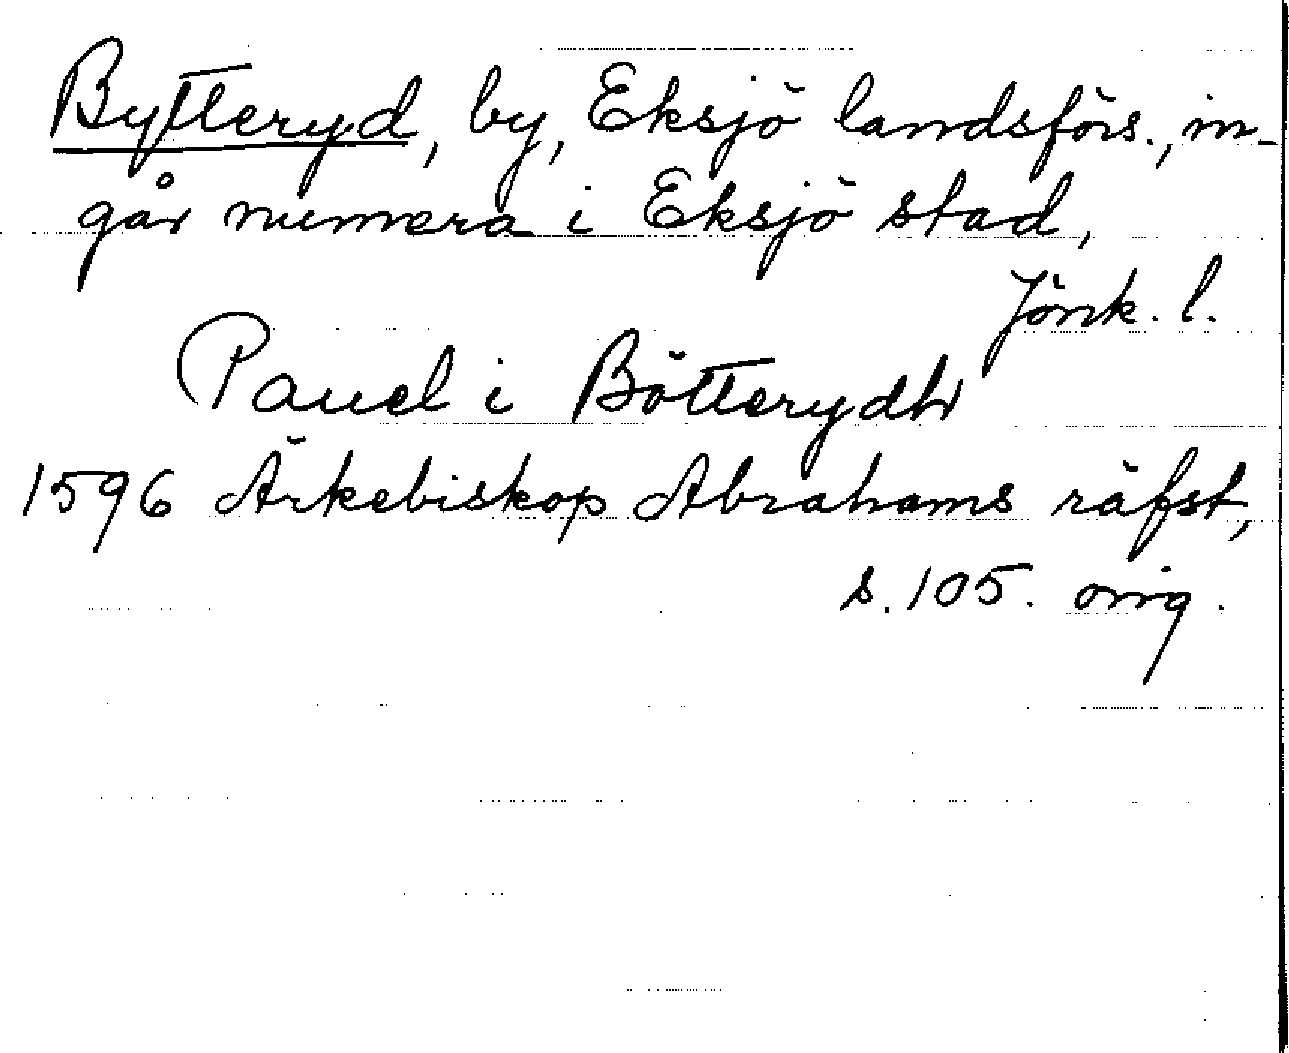 Bytteryd, by, Eksjö landsförs., in-
går numera i Eksjö stad,
Jönk. l.
Pauel i Bötterydh
1596 Ärkebiskop Abrahams räfst,
s. 105. orig.